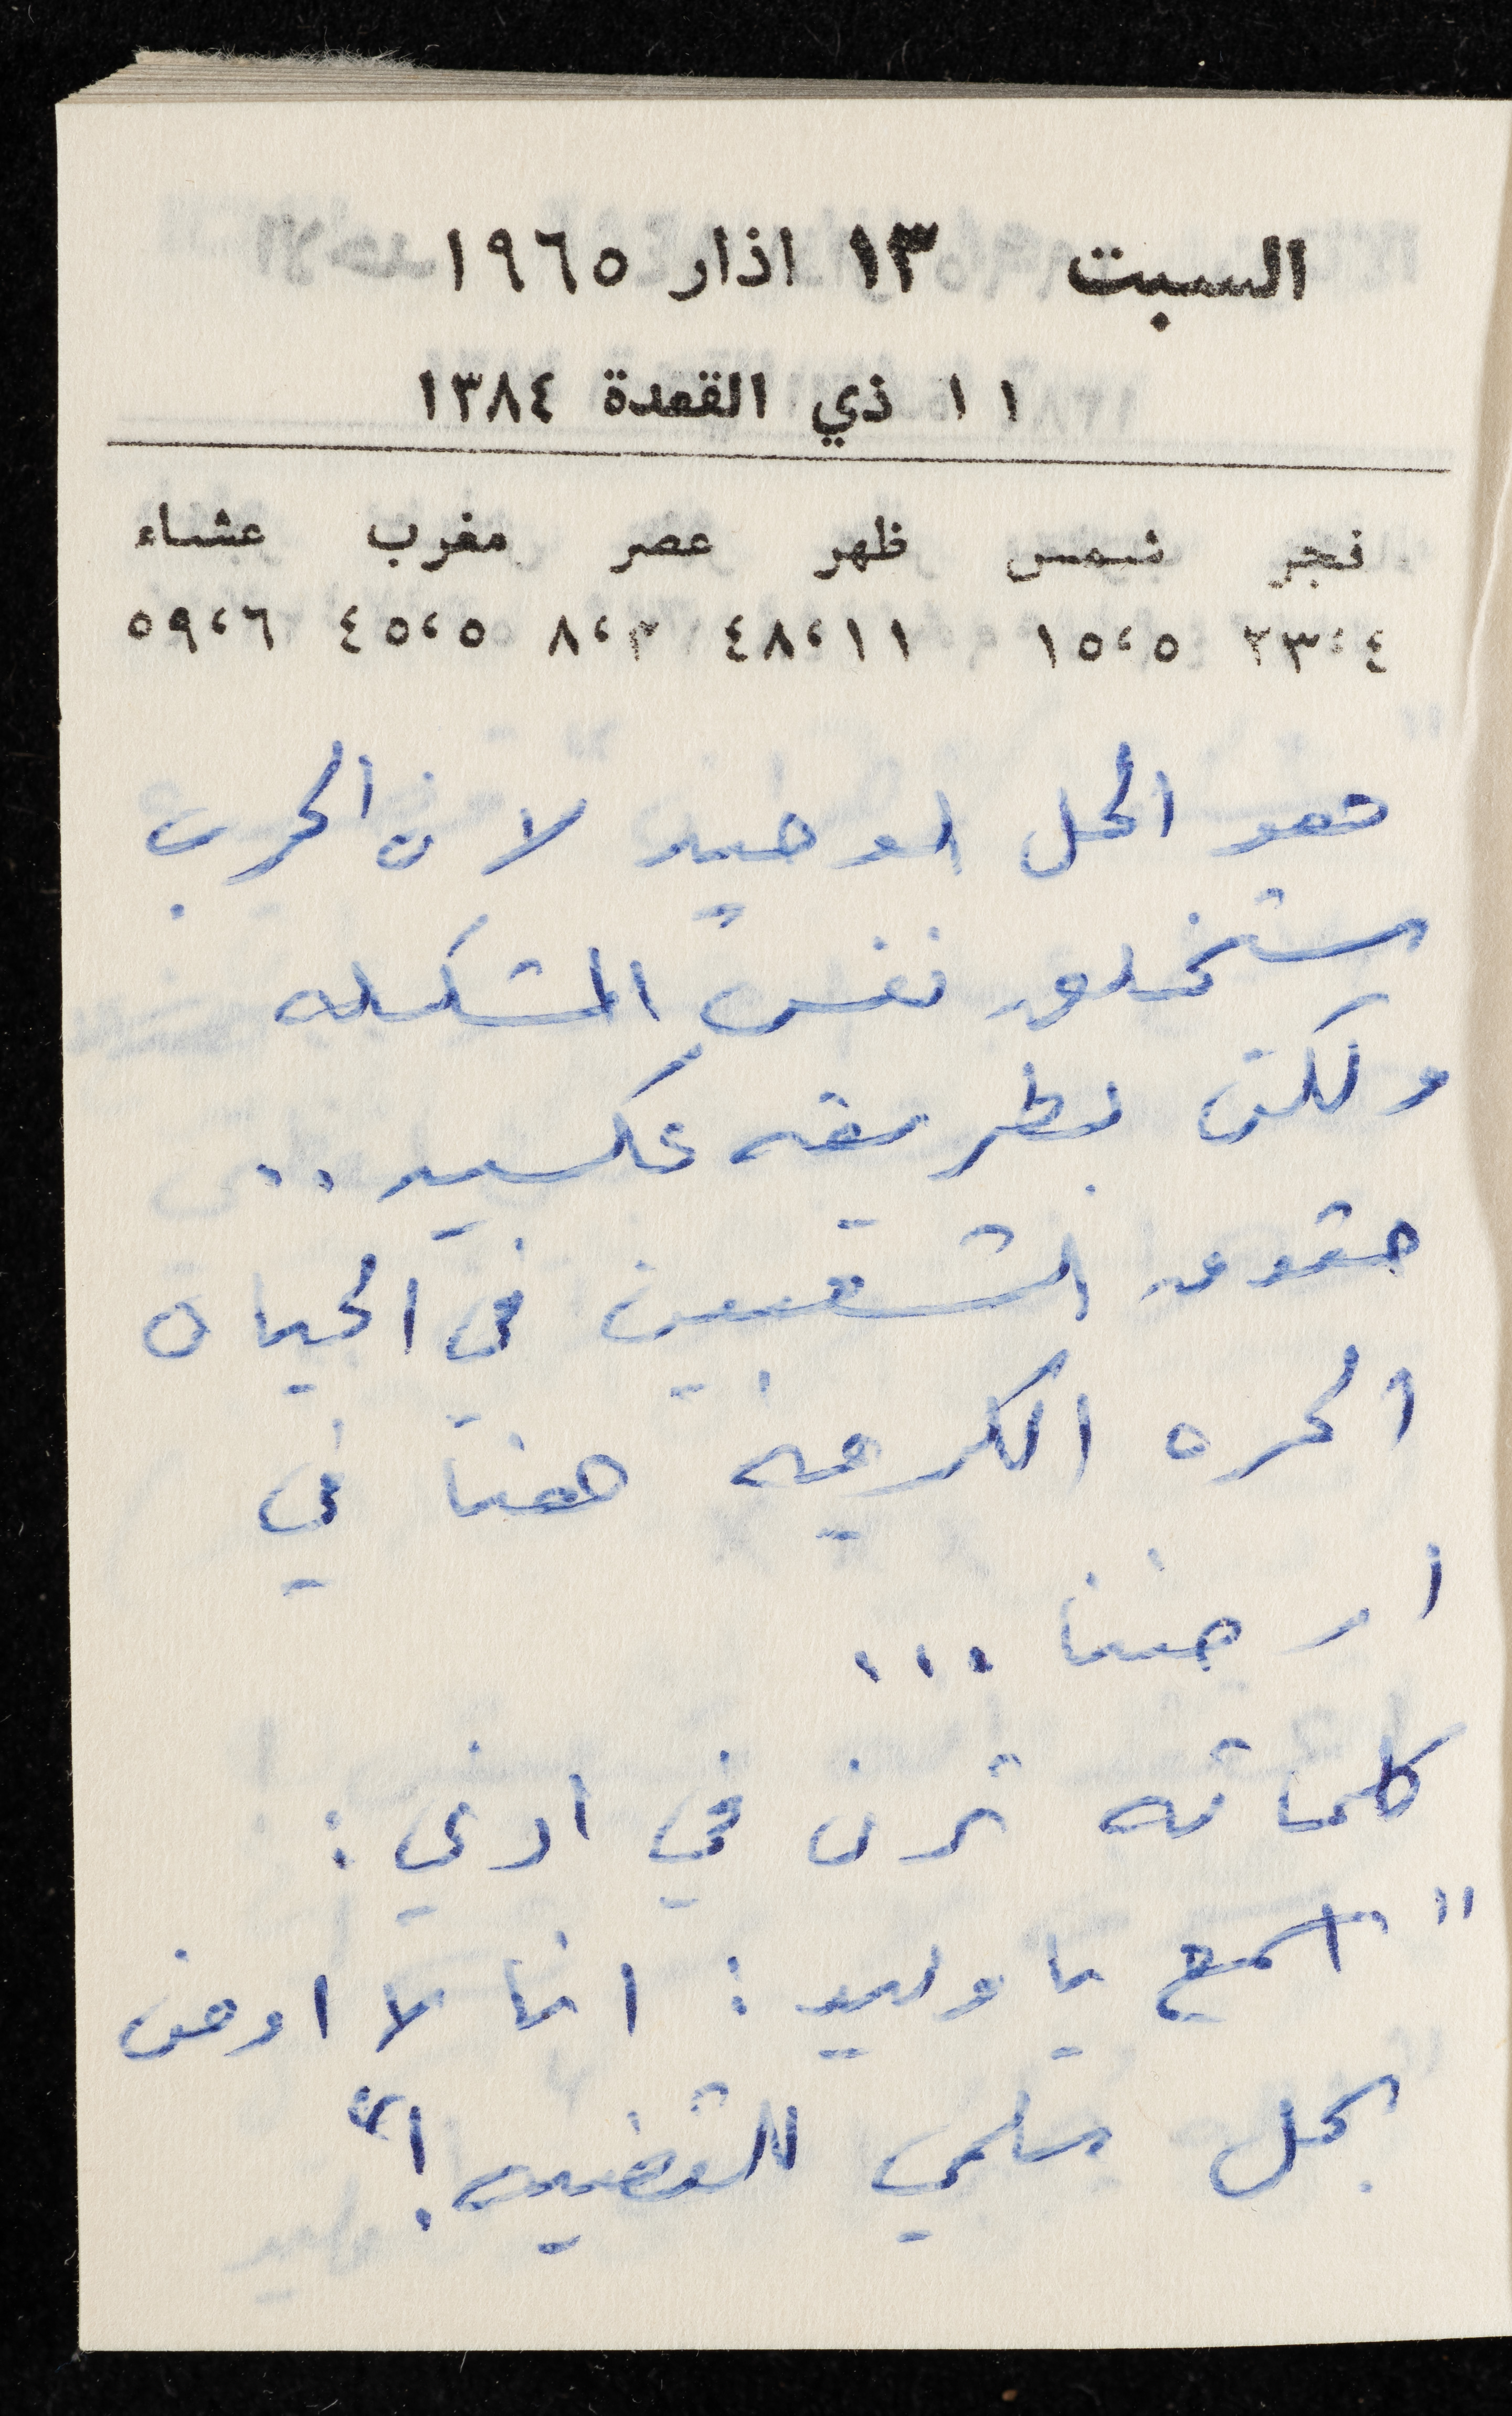 السبت ١٣ اذار ١٩٦٥
١١ ذي القعدة ١٣٨٤
فجر شمس ظهر عصر مغرب عشاء
٢٣،٤ ١٥،٥ ٤٨،١١ ٨،٣ ٤٥،٥ ٥٩،٦
هو الحل الوحيد لان الحرب
ستخلق نفس المشكله
ولكن بطريقه عكسيه ..
حقوق الشعبين في الحياه
الحره الكريمه هنا في
ارضنا ...
كلماته ترن في اذني :
" اسمع يا وليد : انا لا اومن
بحل سلمي للقضيه ! "